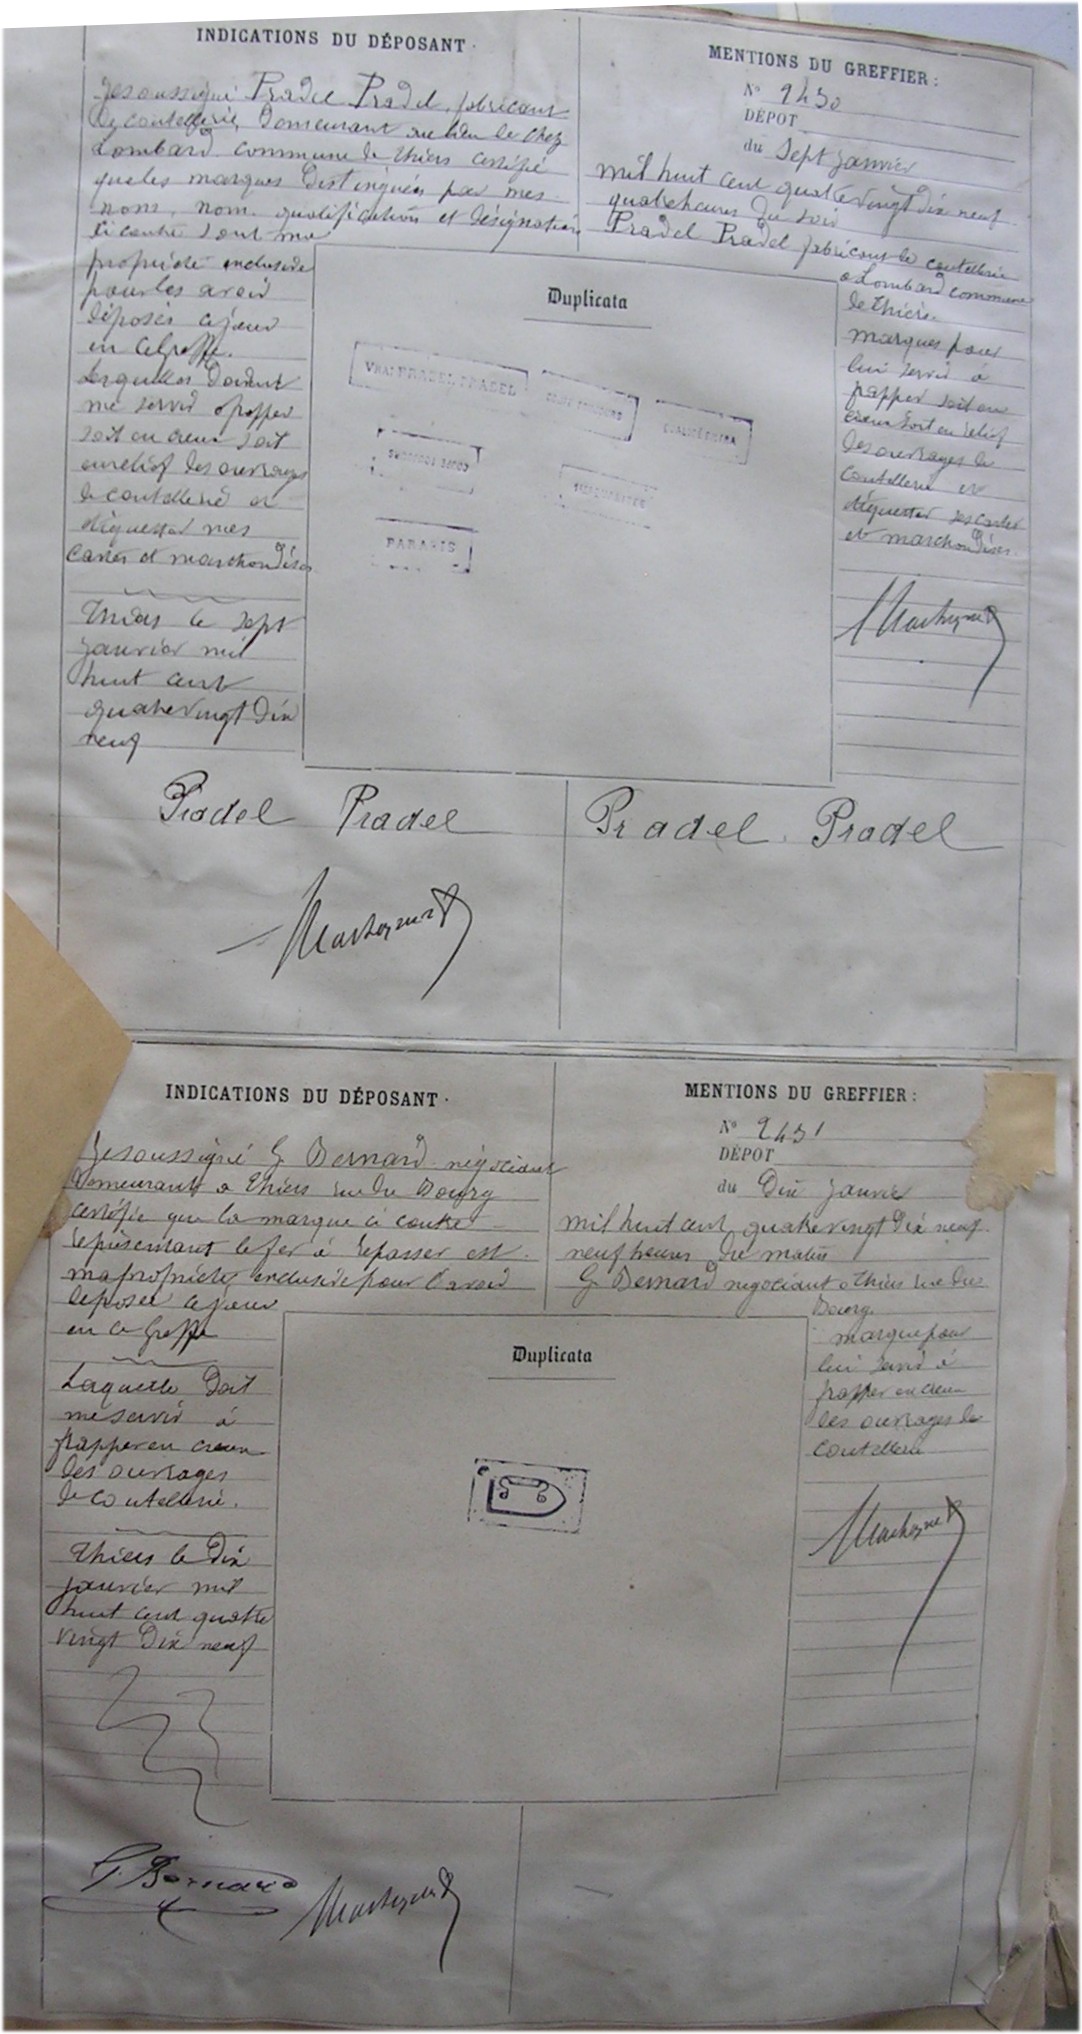 INDICATIONS DU DÉPOSANT
Je soussigné Pradel Pradel, fabricant
de coutellerie, demeurant au lieu de chez
Lombard commune de Thiers certifie
que les marques distinguées par mes
nom, qualification et désignation
ci contre sont ma
propriété exclusive
pour les avoir
déposés ce jour
en ce Greffe.
Lesquelles doivent
me servir à frapper
soit en creux soit
en relief des ouvrages
de coutellerie et
étiqueter mes
cartes et marchandises
Thiers le sept
janvier mil
huit cent
quatrevingt dix
neuf
MENTIONS DU GREFFIER :
N° 2430
DÉPOT
du sept janvier
mil huit cent quatrevingt dix neuf
quatre heures du soir
Pradel Pradel fabricant de coutellerie
à Lombard commune
de Thiers.
marques pour
lui servir à
frapper soit en
creux soit en relief
des ouvrages de
coutellerie et
étiqueter ses cartes
et marchandises
Duplicata
VRAI PRADEL PRADEL
QUALITÉ EXTRA
PARARIS
Pradel Pradel
Pradel Pradel
INDICATIONS DU DÉPOSANT
Je soussigné G Bernard négociant
demeurant à Thiers rue du Bourg
certifie que la marque ci contre
représentant le fer à repasser est
ma propriété exclusive pour l'avoir
déposée ce jour
en ce Greffe
Laquelle doit
me servir à
frapper en creux
des ouvrages
de coutellerie.
Thiers le dix
janvier mil
huit cent quatre
vingt dix neuf
MENTIONS DU GREFFIER :
N° 2431
DÉPOT
du Dix janvier
mil huit cent quatrevingt dix neuf
neuf heures du matin
G Bernard négociant à Thiers rue du
Bourg.
marque pour
lui servir à
frapper en creux
des ouvrages de
coutellerie
Duplicata
G. Bernard